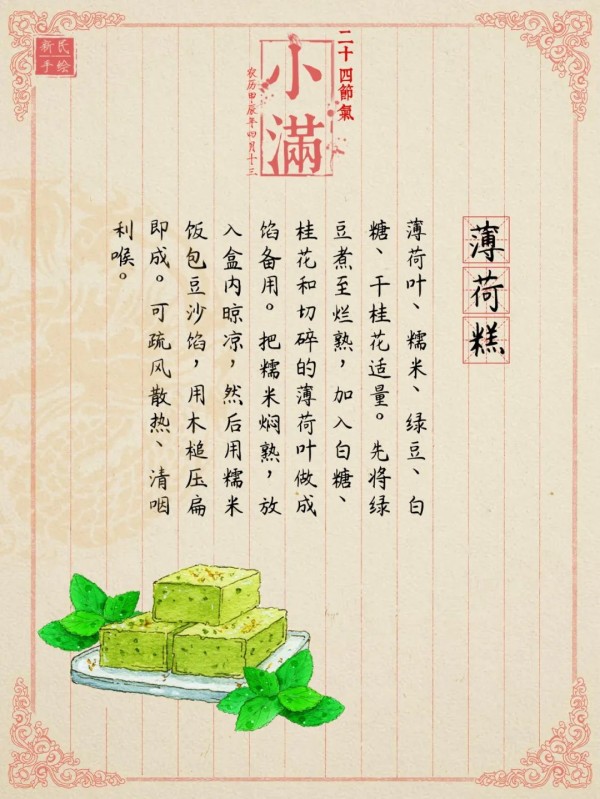 新民
手绘
二十四節氣
小滿
农历甲辰年四月十三
薄荷糕
薄荷叶、糯米、绿豆、白
糖、干桂花适量。先将绿
豆煮至烂熟，加入白糖、
桂花和切碎的薄荷叶做成
馅备用。把糯米焖熟，放
入盒内晾凉，然后用糯米
饭包豆沙馅，用木槌压扁
即成。可疏风散热、清咽
利喉。